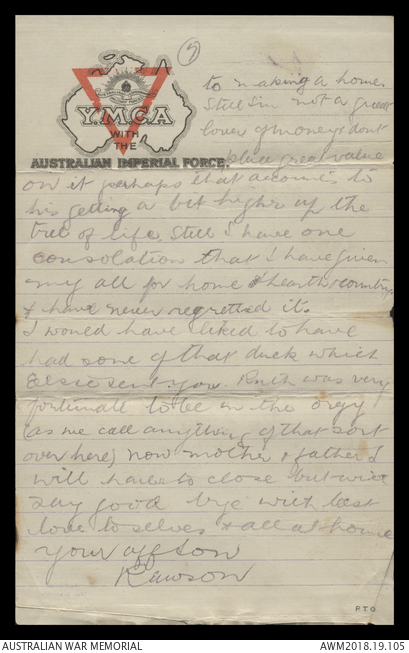 (5)
Y.M.C.A
WITH
THE
AUSTRALIAN IMPERIAL FORCE.
to making a home.
Still I'm not a great
lover of money & don't
place great value
on it perhaps that accounts to
his getting a bit higher up the
tree of life, Still I have one
consolation that I have given
my all for home & hearth & country
& have never regretted it.
I would have liked to have
had some of that duck which
Elsie sent you. Ruth was very
fortunate to be in the orgy
(as we call anything of that sort
over here) now mother & father I
will have to close but will
say good bye with best
love to selves & all at home
Your aff son
Rawson
P.T.O
AUSTRALIAN WAR MEMORIAL
AWM2018.19.105